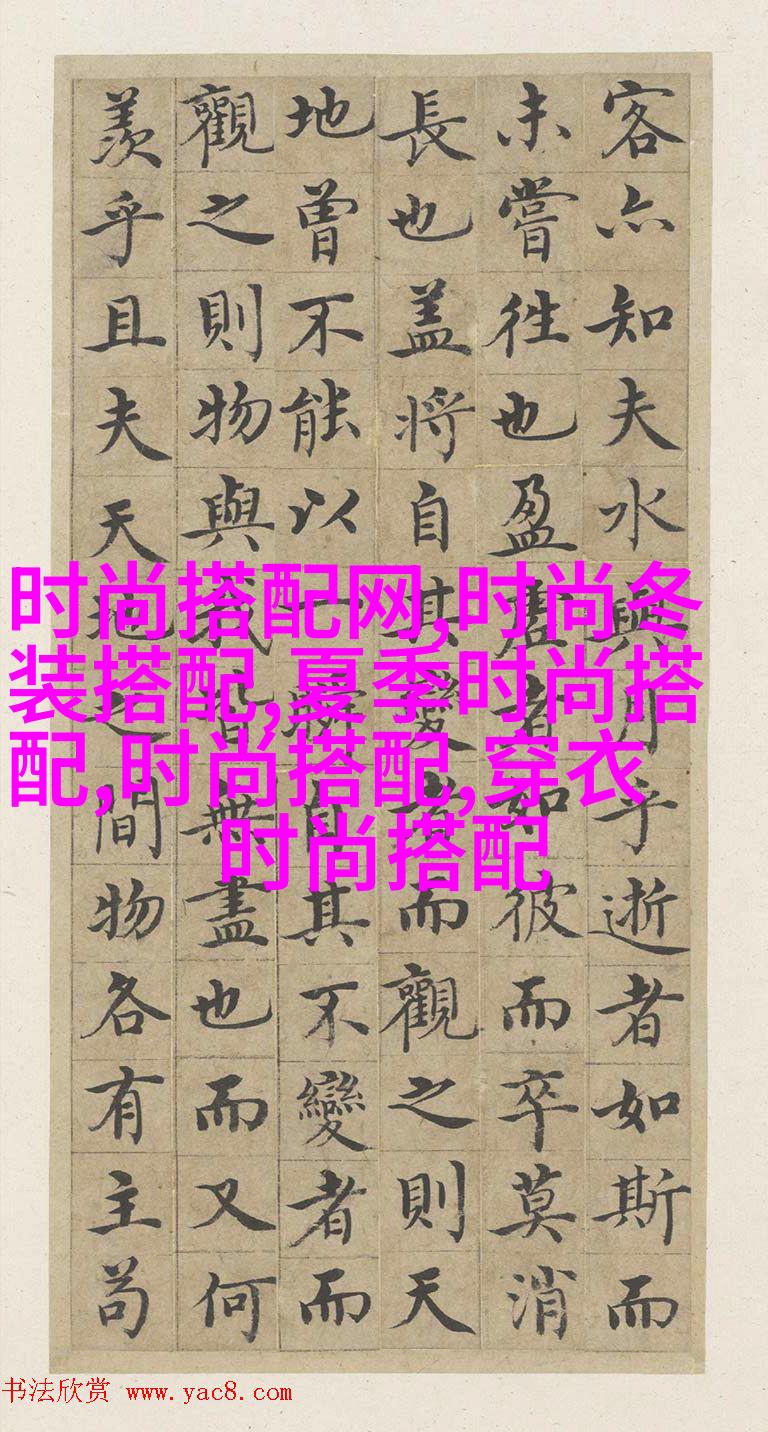 客亦知夫水與月乎逝者如斯而
未嘗往也盈虛者如彼而卒莫消
長也盖将自其變者而觀之則天
地曾不能以一瞬自其不變者而
觀之則物與我皆無盡也而又何
羨乎且夫天地之間物各有主苟
时尚搭配网,时尚冬
装搭配,夏季时尚搭
配,时尚搭配,穿衣
时尚搭配
书法欣赏 www.yac8.com